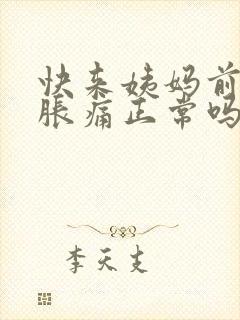 快来姨妈前
胀痛正常吗
李天支